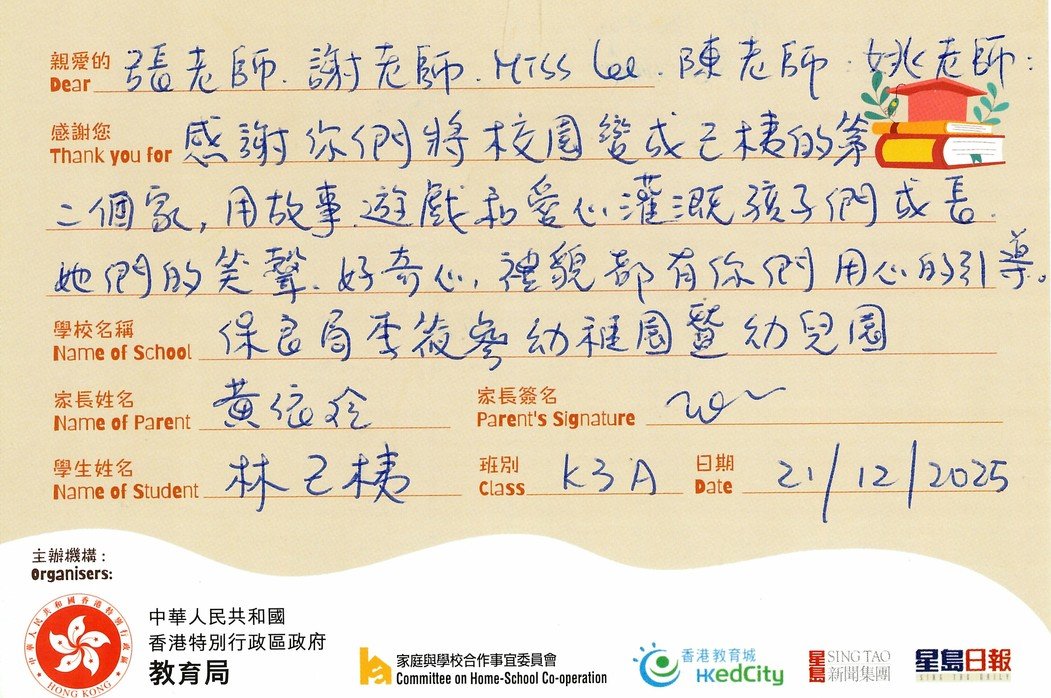 親愛的
Dear 張老師、謝老師、Miss Lee、陳老師、姚老師：
感謝您
Thank you for 感謝你們將校園變成己棣的第
二個家，用故事、遊戲和愛心灌溉孩子們成長。
她們的笑聲、好奇心、禮貌都有你們用心的引導。
學校名稱
Name of School 保良局李筱參幼稚園暨幼兒園
家長姓名 家長簽名
Name of Parent 黃依玲 Parent's Signature
學生姓名 班別 日期
Name of Student 林己棣 Class K3A Date 21/12/2025
主辦機構：
Organisers:
中華人民共和國香港特別行政區
HONG KONG
中華人民共和國
香港特別行政區政府
教育局
家庭與學校合作事宜委員會
Committee on Home-School Co-operation
香港教育城
HKedCity
星島 SING TAO
新聞集團
星島日報
SING TAO DAILY